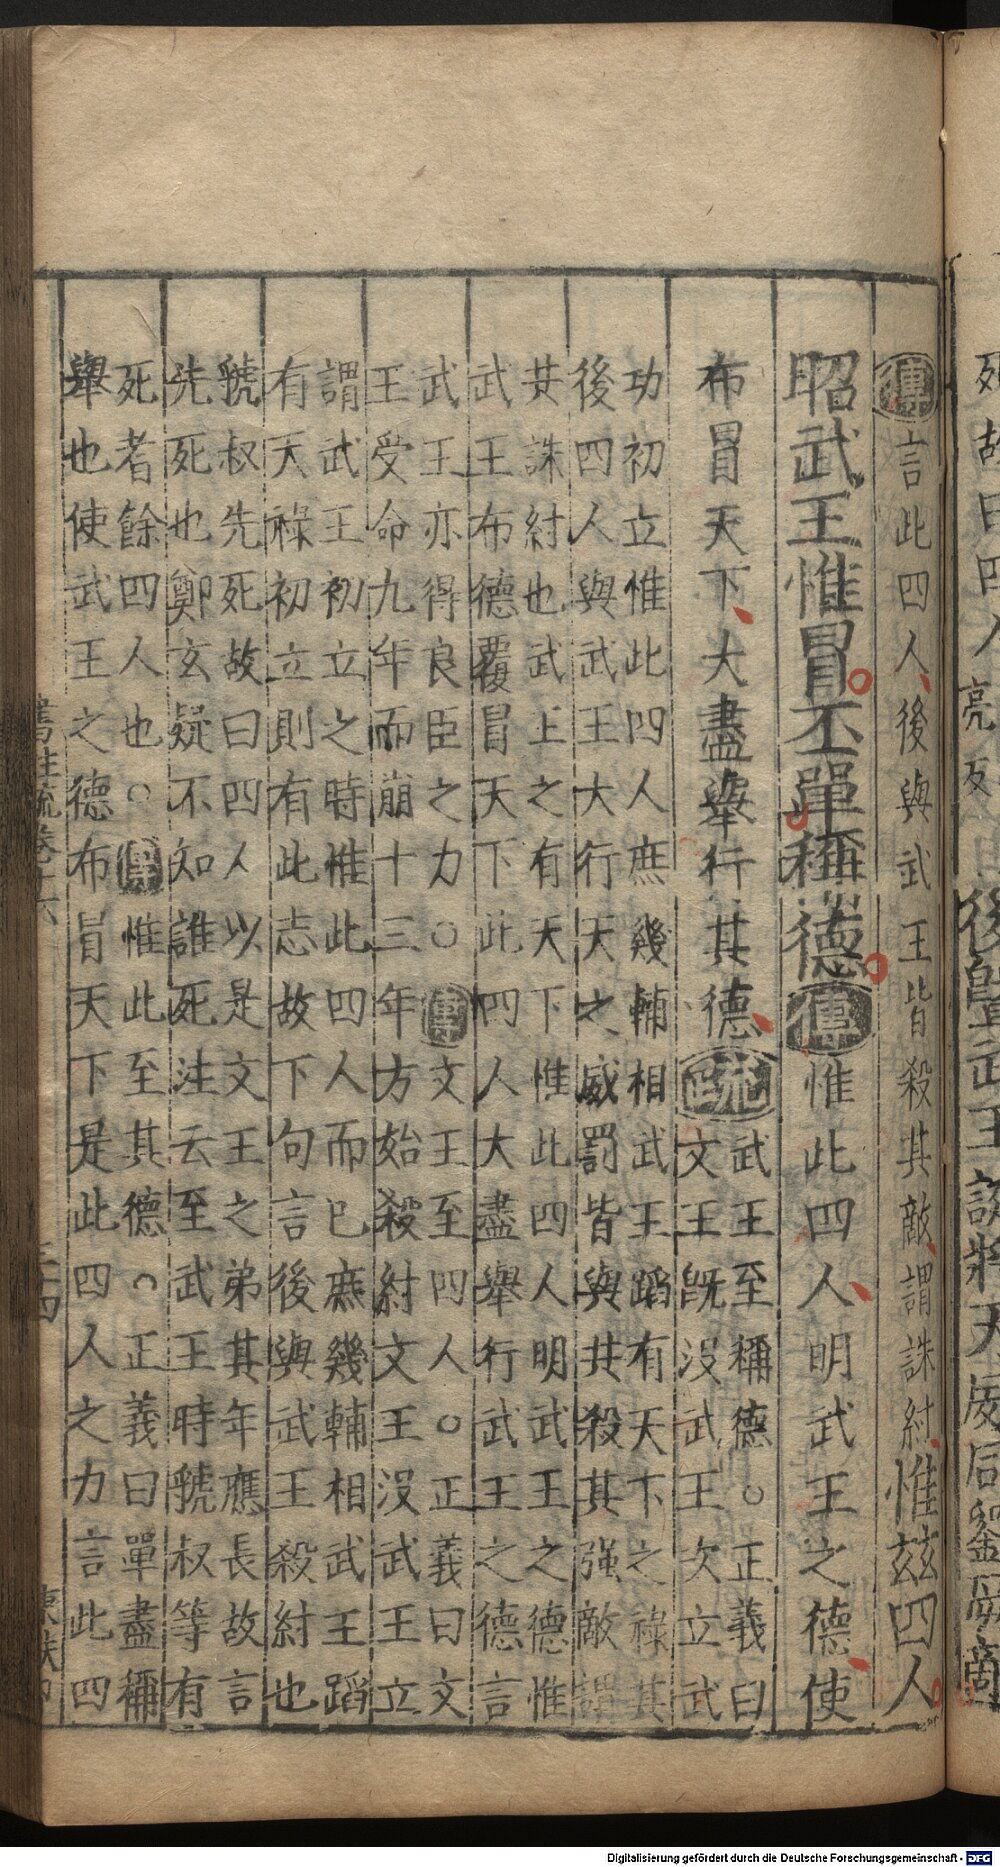 傳言此四人後與武王皆殺其敵謂誅紂惟茲四人
昭武王惟冒丕單稱德傳惟此四人明武王之德使
布冒天下大盡舉行其德疏
武王至稱德○正義曰
文王既没武王次立武
功初立惟此四人庶幾輔相武王蹈有天下之祿其
後四人與武王大行天之威罰皆與共殺其强敵謂
共誅紂也武上之有天下惟此四人明武王之德惟
武王布德覆冒天下此四人大盡舉行武王之德言
武王亦得良臣之力○傳文王至四人○正義曰文
王受命九年而崩十三年方始殺紂文王没武王立
謂武王初立之時惟此四人而已庶幾輔相武王蹈
有天祿初立則有此志故下句言後與武王殺紂也
虢叔先死故曰四人以是文王之弟其年應長故言
先死也鄭玄疑不知誰死注云至武王時虢叔等有
死者餘四人也○傳惟此至其德○正義曰單盡稱
舉也使武王之德布冒天下是此四人之力言此四
死故曰四人
亮反
後曁武王誕將天威咸劉厥敵
Digitalisierung gefördert durch die Deutsche Forschungsgemeinschaft - DFG